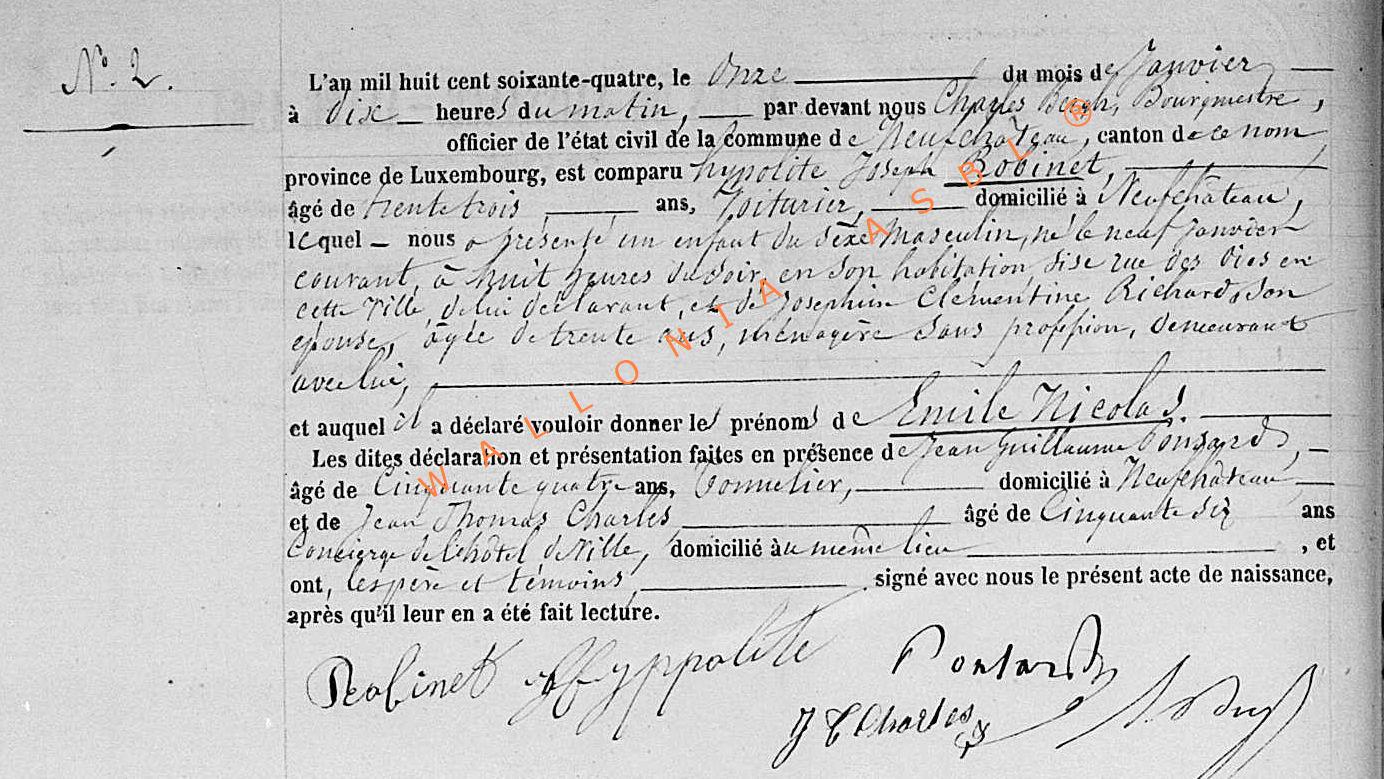 N° 2.
L'an mil huit cent soixante-quatre, le Onze du mois de Janvier
à Dix heures du matin, par devant nous Charles Bergh, Bourgmestre,
officier de l'état civil de la commune de Neufchâteau, canton de ce nom
province de Luxembourg, est comparu hypolite Joseph Robinet,
âgé de trente trois ans, Voiturier, domicilié à Neufchâteau,
lequel nous a présenté un enfant du sexe Masculin, né le neuf Janvier
courant, à huit heures du soir, en son habitation, sise rue des Oies en
cette Ville, de lui déclarant, et de Josephine Clémentine Richard, son
épouse, âgée de trente ans, ménagère sans profession, demeurant
avec lui,
et auquel il a déclaré vouloir donner les prénoms de Emile Nicolas.
Les dites déclaration et présentation faites en présence de Jean Guillaume Ponsard,
âgé de Cinquante quatre ans, Tonnelier, domicilié à Neufchâteau
et de Jean Thomas Charles âgé de Cinquante six ans
Concierge de l'hôtel de Ville, domicilié au même lieu , et
ont, les père et témoins, signé avec nous le présent acte de naissance,
après qu'il leur en a été fait lecture.
Robinet Hyppolite Ponsard
J T Charles
WALLONIA ASBL ®